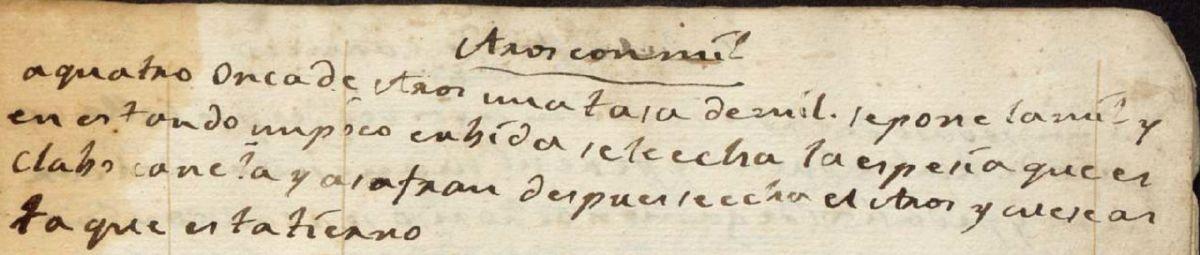 Aros con mil
a quatro onca de Aros una tasa de mil. se pone la mil y
en estando un poco enbida se le echa la espesia que es
Clabo canela y asafran despues se echa el Aros y cuese as
ta que esta tierno